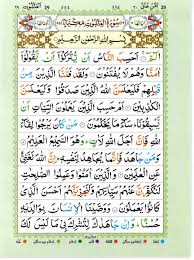 اَمَّنْ خَلَقَ ٢٠
العنكبوت ٢٩
سُوْرَةُ الْعَنْكَبُوْتِ مَكِّيَّةٌ
بِسْمِ اللّٰهِ الرَّحْمٰنِ الرَّحِيْمِ
الٓمّٓ ۚ اَحَسِبَ النَّاسُ اَنْ يُّتْرَكُوْٓا اَنْ
يَّقُوْلُوْٓا اٰمَنَّا وَهُمْ لَا يُفْتَنُوْنَ وَلَقَدْ فَتَنَّا
الَّذِيْنَ مِنْ قَبْلِهِمْ فَلَيَعْلَمَنَّ اللّٰهُ الَّذِيْنَ صَدَقُوْا
وَلَيَعْلَمَنَّ الْكٰذِبِيْنَ اَمْ حَسِبَ الَّذِيْنَ يَعْمَلُوْنَ السَّيِّاٰتِ اَنْ
يَّسْبِقُوْنَا سَآءَ مَا يَحْكُمُوْنَ مَنْ كَانَ يَرْجُوْا لِقَآءَ
اللّٰهِ فَاِنَّ اَجَلَ اللّٰهِ لَاٰتٍ وَهُوَ السَّمِيْعُ الْعَلِيْمُ
وَمَنْ جَاهَدَ فَاِنَّمَا يُجَاهِدُ لِنَفْسِهٖ اِنَّ اللّٰهَ لَغَنِيٌّ
عَنِ الْعٰلَمِيْنَ وَالَّذِيْنَ اٰمَنُوْا وَعَمِلُوا الصّٰلِحٰتِ
لَنُكَفِّرَنَّ عَنْهُمْ سَيِّاٰتِهِمْ وَلَنَجْزِيَنَّهُمْ اَحْسَنَ الَّذِيْ
كَانُوْا يَعْمَلُوْنَ وَوَصَّيْنَا الْاِنْسَانَ بِوَالِدَيْهِ
حُسْنًا وَاِنْ جَاهَدٰكَ لِتُشْرِكَ بِيْ مَا لَيْسَ